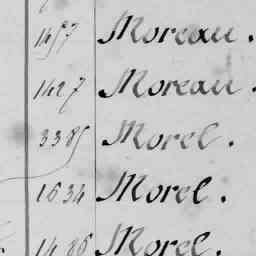 1457 Moreau.
1427 Moreau.
3385 Morel.
1634 Morel.
1486 Morel.